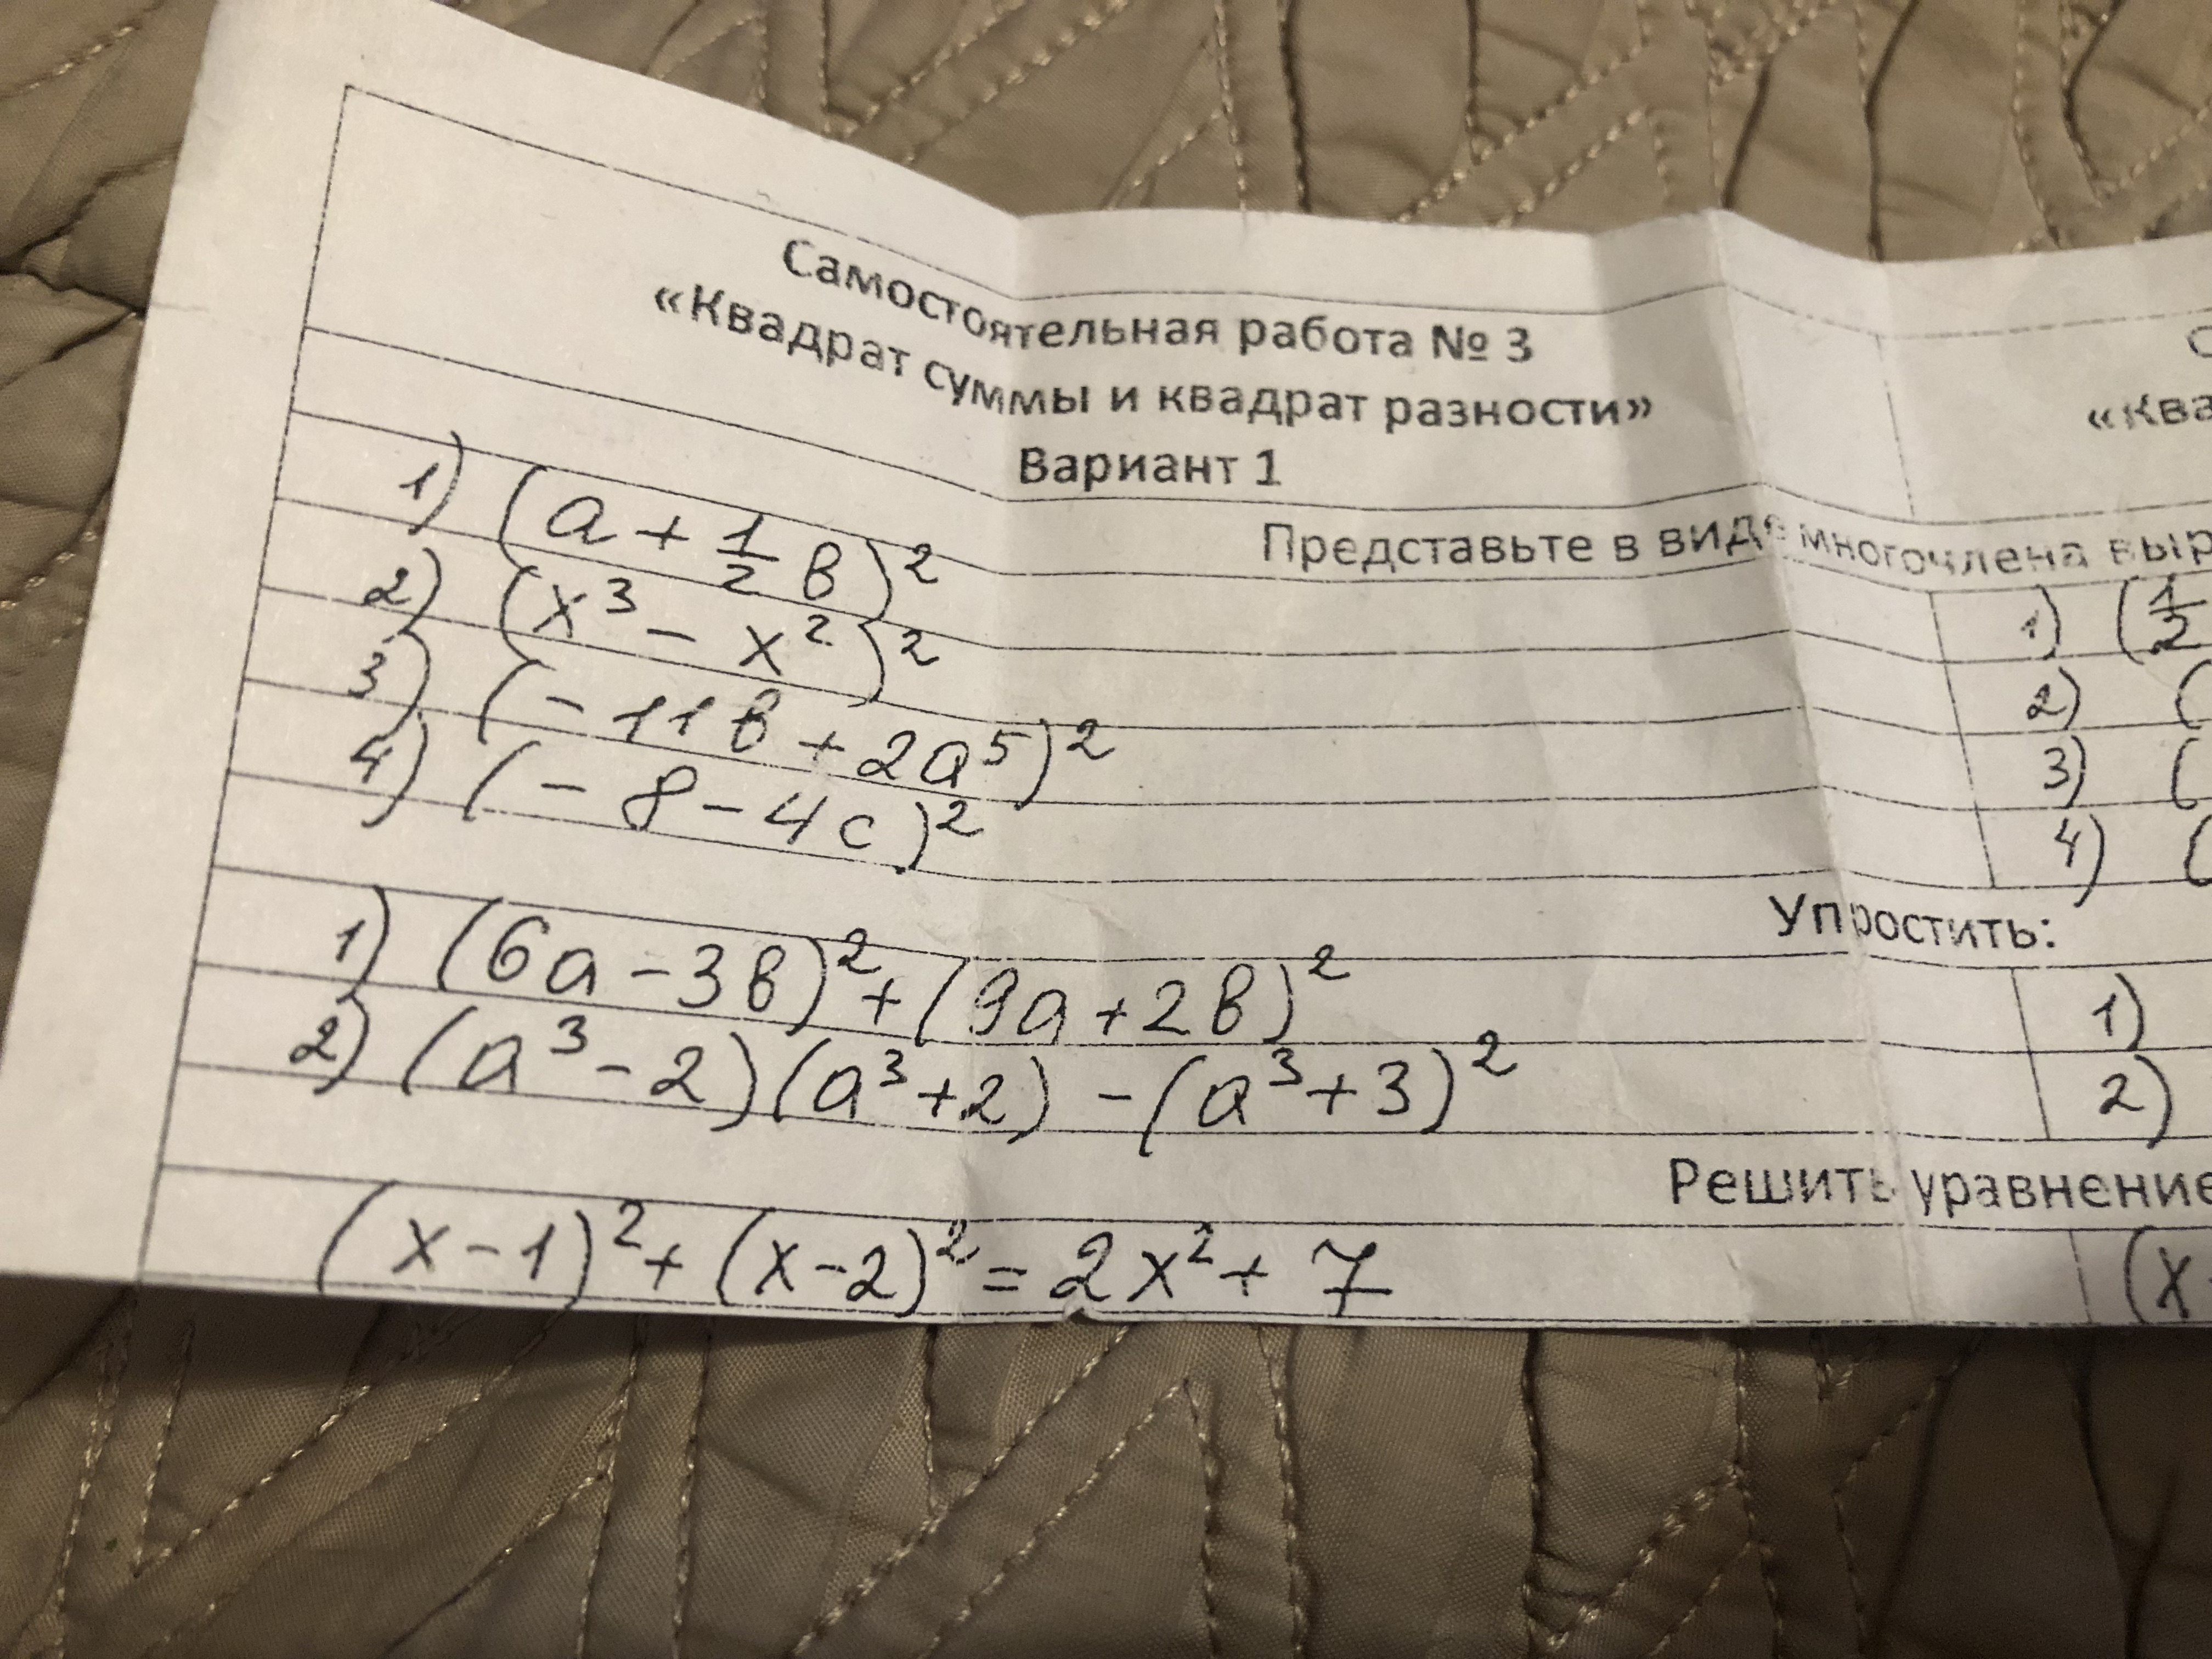 Самостоятельная работа № 3
«Квадрат суммы и квадрат разности»
«Ква
Вариант 1
Представьте в виде многочлена выр
1) (a + 1/2 b)²
1) (1/2
2) (x³ - x²)²
2) (
3) (- 11b + 2a⁵)²
3) (
4) (- 8 - 4c)²
4) (
Упростить:
1) (6a - 3b)² + (9a + 2b)²
1)
2) (a³ - 2)(a³ + 2) - (a³ + 3)²
2)
Решить уравнение
(x - 1)² + (x - 2)² = 2x² + 7
(x